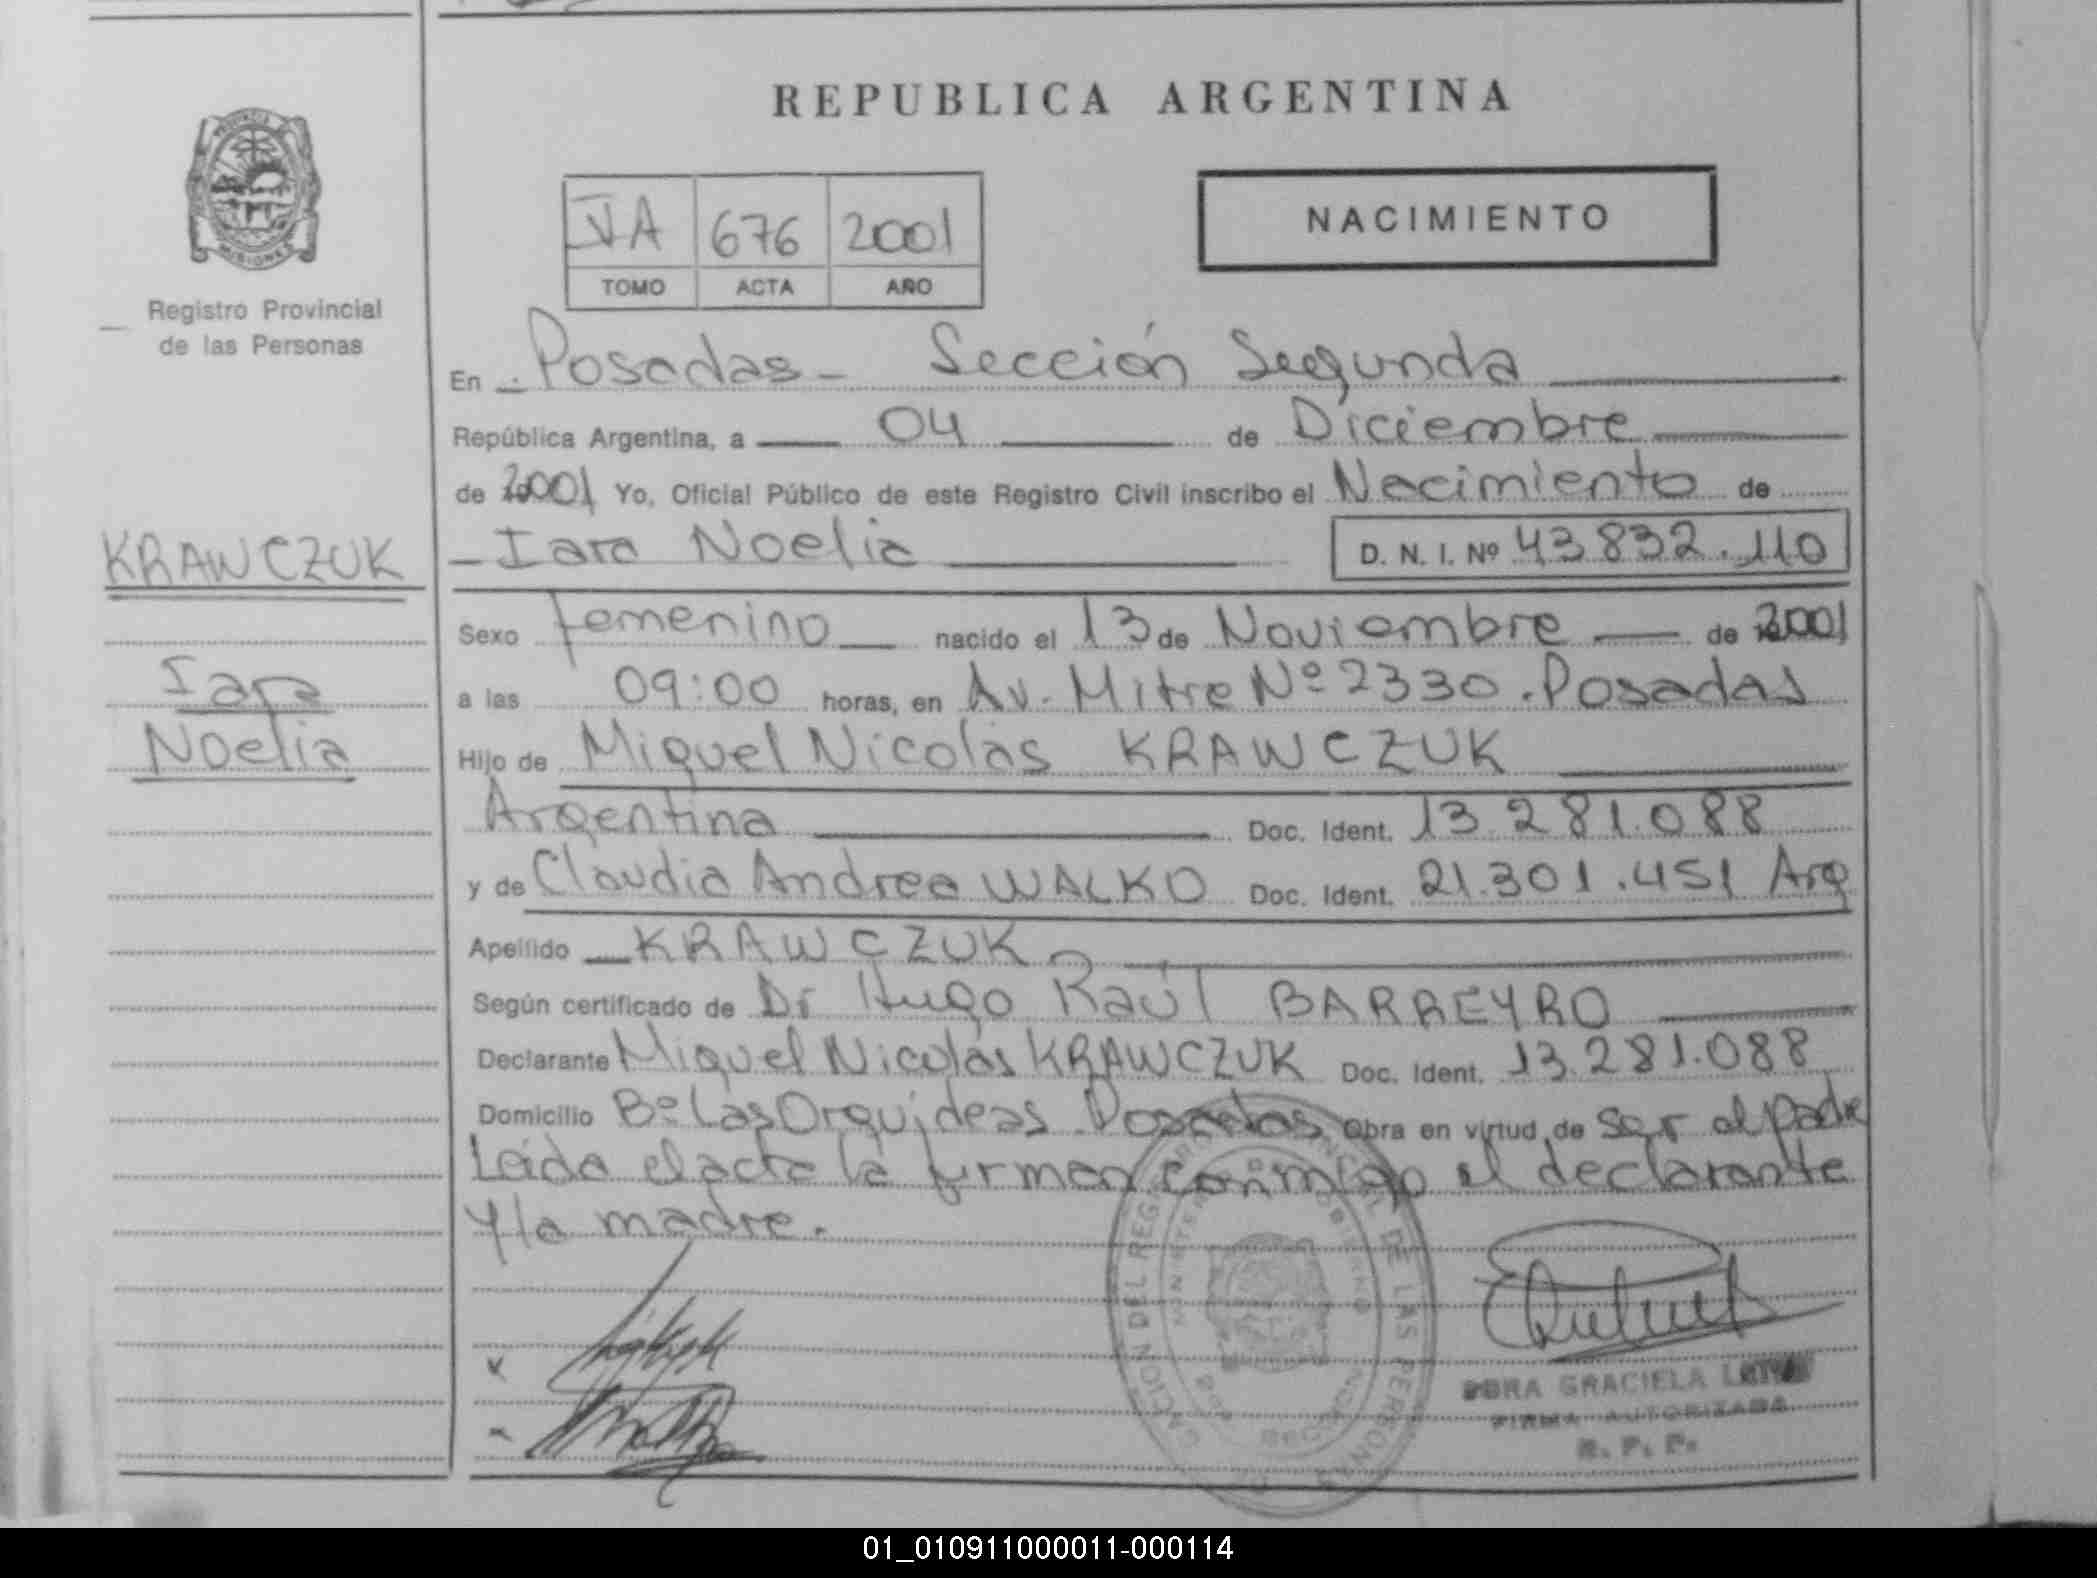 REPUBLICA ARGENTINA
PROVINCIA DE
MISIONES
Registro Provincial
de las Personas
VA 676 2001
TOMO ACTA AÑO
NACIMIENTO
En Posadas - Sección Segunda
República Argentina, a 04 de Diciembre
de 2001 Yo, Oficial Público de este Registro Civil inscribo el Nacimiento de
Iara Noelia D. N. I. Nº 43 832.110
KRAWCZUK
Iara
Noelia
Sexo femenino nacido el 13 de Noviembre de 2001
a las 09:00 horas, en Av. Mitre Nº 2330. Posadas
Hijo de Miguel Nicolás KRAWCZUK
Argentina Doc. Ident. 13.281.088
y de Claudia Andrea WALKO Doc. Ident. 21.301.451 Arg
Apellido KRAWCZUK
Según certificado de Dr Hugo Raúl BARREYRO
Declarante Miguel Nicolás KRAWCZUK Doc. Ident. 13.281.088
Domicilio Bº Las Orquídeas Posadas Obra en virtud de ser el padre
Leida el acta la firman conmigo el declarante
y la madre.
GRACIELA
FIRMA AUTORIZADA
R. P. P.
01_010911000011-000114